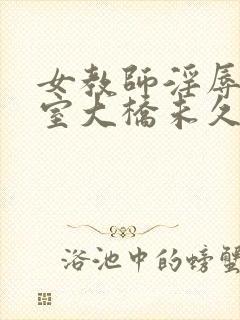 女教師淫辱
室大橋未久
浴池中的螃蟹